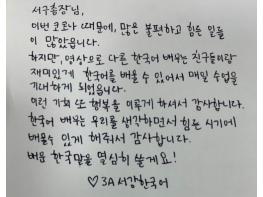 서강총장님,
이번 코로나 때문에, 많은 불편하고 힘든 일들
이 많았읍니다.
하지만, 영상으로 다른 한국어 배우는 친구들이랑
재미있게 한국어를 배울 수 있어서 매일 수업을
기대하게 되었읍니다.
이런 기회 또 행복을 이루게 하셔서 감사합니다.
한국어 배우는 우리를 생각하면서 힘든 시기에
배울수 있게 해줘서 감사합니다.
배운 한국말을 열심히 쓸게요!
♡3A 서강한국어